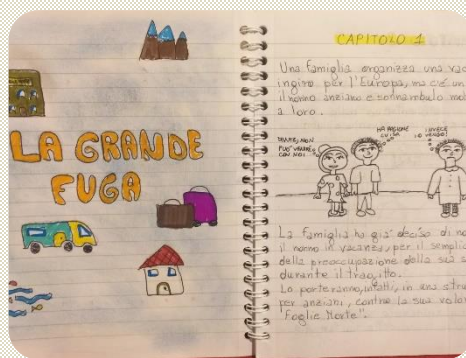 LA GRANDE
FUGA
CAPITOLO 1
Una famiglia organizza una
in giro per l'Europa, ma c'è un
il nonno anziano e sonnambulo
a loro.
NON
PUO' VENIRE
CON NOI
HA RAGIONE
LUISA
INVECE
IO VENGO!
La famiglia ha già deciso di
il nonno in vacanza, per il semplice
della preoccupazione della sua
durante il tragitto.
Lo porteranno, infatti, in una
per anziani, contro la sua
"Foglie Morte".